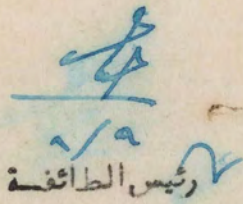 ٨/٩
رئيس الطائفة